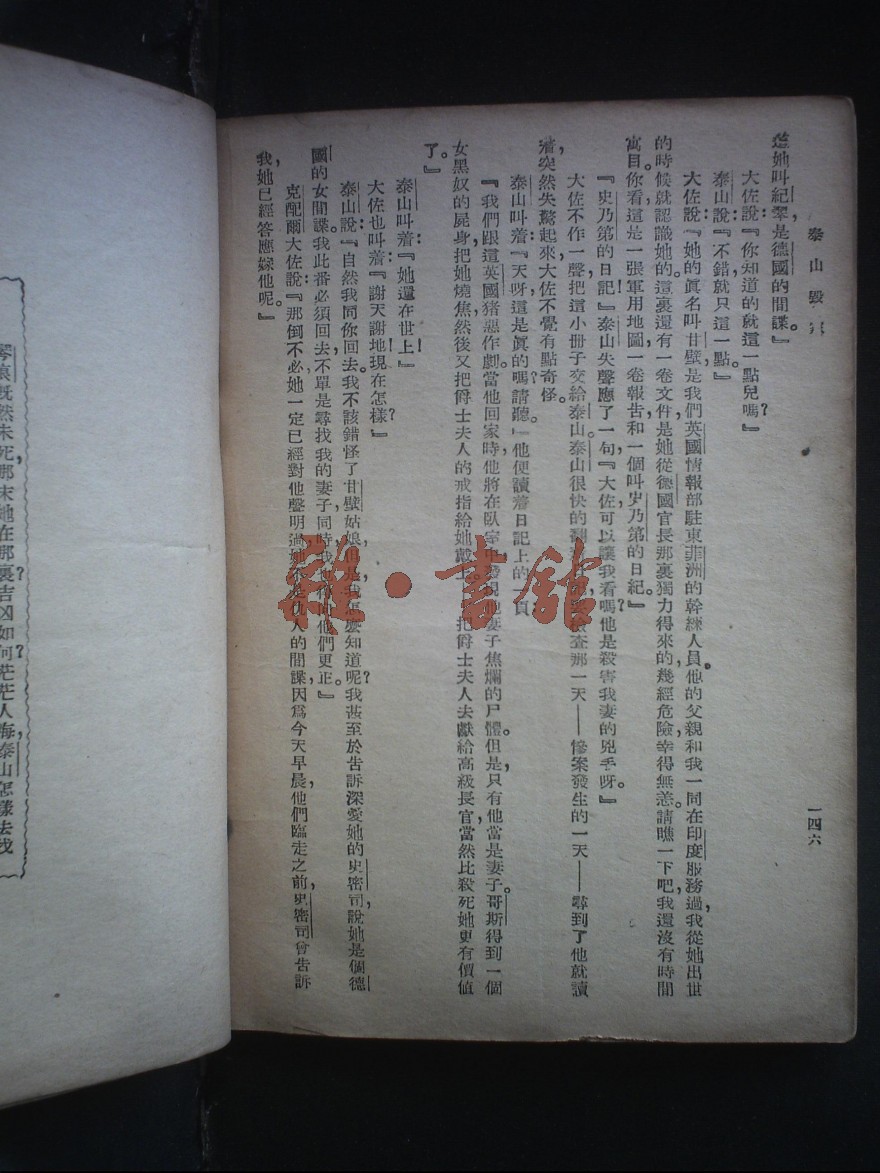 泰山毀
一四六
她叫紀翠，是德國的間諜。』
大佐說：『你知道的就這一點兒嗎？』
泰山說：『不錯，就只這一點。』
大佐說：『她的眞名叫甘壁，是我們英國情報部駐東菲洲的幹練人員。他的父親和我一同在印度服務過，我從她出世
的時候就認識她的。這裏還有一卷文件，是她從德國官長那裏獨力得來的，幾經危險，幸得無恙。請瞧一下吧，我還沒有時間
寓目。你看，這是一張軍用地圖，一卷報告，和一個叫史乃第的日紀。』
『史乃第的日記！』泰山失聲應了一句，『大佐，可以讓我看嗎？他是殺害我妻的兇手呀。』
大佐不作一聲，把這小册子交給泰山。泰山很快的翻 查那一天——慘案發生的一天——尋到了他就讀
着，突然失驚起來，大佐不覺有點奇怪。
泰山叫着：『天呀！這是眞的嗎？請聽：』他便讀着日記上的一頁
『我們跟這英國猪惡作劇。當他回家時，他將在臥室中發現他妻子焦爛的尸體。但是，只有他當是妻子。哥斯得到一個
女黑奴的屍身，把她燒焦，然後又把爵士夫人的戒指給她戴上。把爵士夫人去獻給高級長官，當然比殺死她更有價值
了。』
泰山叫着：『她還在世上！』
大佐也叫着：『謝天謝地！現在怎樣？』
泰山說：『自然我同你回去。我不該錯怪了甘壁姑娘，但他我怎麼知道呢？我甚至於告訴深愛她的史密司，說她是個德
國的女間諜。我此番必須回去，不單是尋找我的妻子，同時我 他們更正。』
克配爾大佐說：『那倒不必，她一定已經對他聲明過她不是仇人的間諜，因爲今天早晨，他們臨走之前，史密司會告訴
我，她已經答應嫁他呢。』
琴痕旣然未死，那末她在那裏？吉凶如何？茫茫人海，泰山怎樣去找
雜·書館